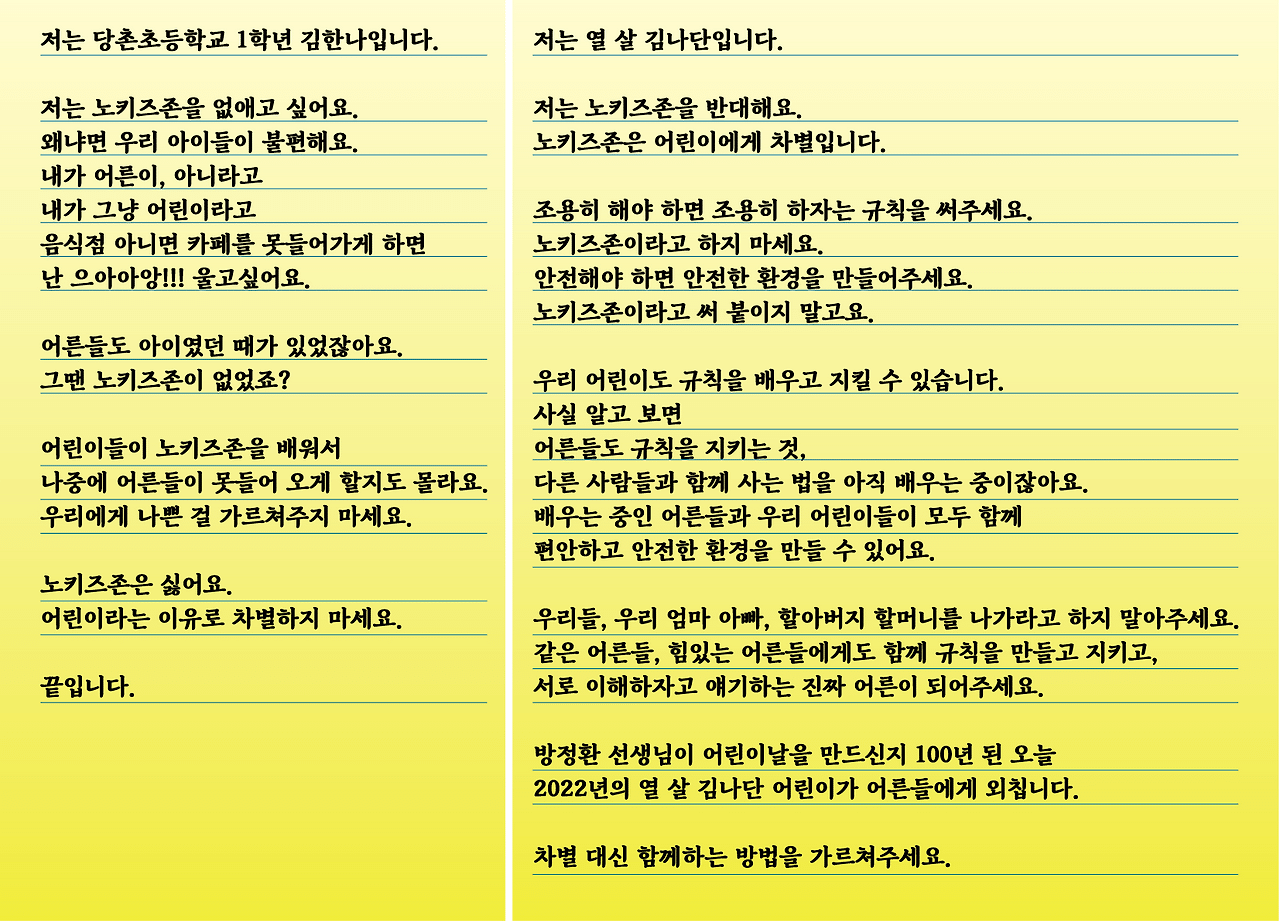 저는 당촌초등학교 1학년 김한나입니다.
저는 노키즈존을 없애고 싶어요.
왜냐면 우리 아이들이 불편해요.
내가 어른이, 아니라고
내가 그냥 어린이라고
음식점 아니면 카페를 못들어가게 하면
난 으아아앙!!! 울고싶어요.
어른들도 아이였던 때가 있었잖아요.
그땐 노키즈존이 없었죠?
어린이들이 노키즈존을 배워서
나중에 어른들이 못들어 오게 할지도 몰라요.
우리에게 나쁜 걸 가르쳐주지 마세요.
노키즈존은 싫어요.
어린이라는 이유로 차별하지 마세요.
끝입니다.
저는 열 살 김나단입니다.
저는 노키즈존을 반대해요.
노키즈존은 어린이에게 차별입니다.
조용히 해야 하면 조용히 하자는 규칙을 써주세요.
노키즈존이라고 하지 마세요.
안전해야 하면 안전한 환경을 만들어주세요.
노키즈존이라고 써 붙이지 말고요.
우리 어린이도 규칙을 배우고 지킬 수 있습니다.
사실 알고 보면
어른들도 규칙을 지키는 것,
다른 사람들과 함께 사는 법을 아직 배우는 중이잖아요.
배우는 중인 어른들과 우리 어린이들이 모두 함께
편안하고 안전한 환경을 만들 수 있어요.
우리들, 우리 엄마 아빠, 할아버지 할머니를 나가라고 하지 말아주세요.
같은 어른들, 힘있는 어른들에게도 함께 규칙을 만들고 지키고,
서로 이해하자고 얘기하는 진짜 어른이 되어주세요.
방정환 선생님이 어린이날을 만드신지 100년 된 오늘
2022년의 열 살 김나단 어린이가 어른들에게 외칩니다.
차별 대신 함께하는 방법을 가르쳐주세요.